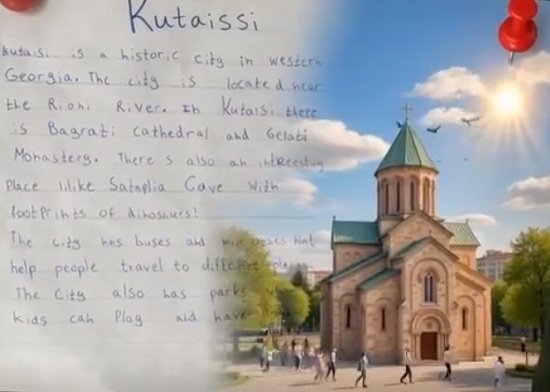 Kutaissi
Kutaisi is a historic city in western
Georgia. The city is located near
the Rioni River. In Kutaisi there
is Bagrati cathedral and Gelati
Monastery. There s also an interesting
Place like Sataplia Cave with
footprints of dinosaurs!
The city has buses and minibuses that
help people travel to different
The City also has parks
kids can Play and have